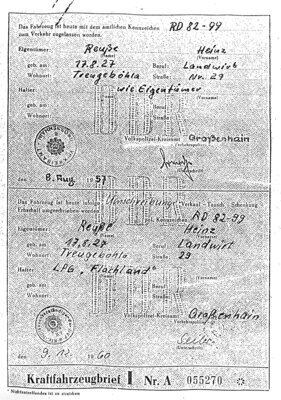 Das Fahrzeug ist heute mit dem amtlichen Kennzeichen RD 82-99
zum Verkehr zugelassen worden.
Eigentümer: Reuße Heinz
(Name) (Vorname)
geb. am 17.8.27 Beruf: Landwirt
Wohnort: Treugeböhla Nr. 29
Halter: wie Eigentümer
(Name) (Vorname)
geb. am Beruf:
Wohnort:
DDR
Volkspolizei-Kreisamt Großenhain
den 8. Aug 1957
DDR
Das Fahrzeug ist heute infolge Umschreibung Verkauf - Tausch - Schenkung
RD 82-99
Eigentümer: Reuße Heinz
(Name) (Vorname)
geb. am 17.8.27 Beruf: Landwirt
Wohnort: Treugeböhla 29
Halter: LPG „Flachland"
geb. am Beruf:
Wohnort:
DDR
Volkspolizei-Kreisamt Großenhain
den 9.12. 1960
(Unterschrift)
Kraftfahrzeugbrief I Nr. A 055270 *
* Nichtzutreffendes ist zu streichen